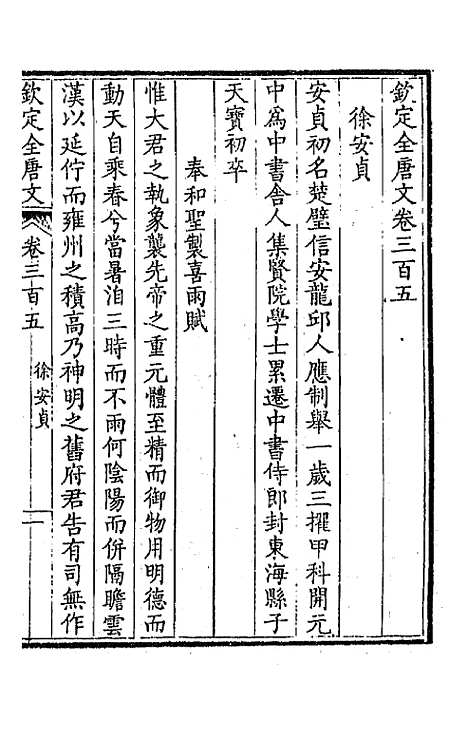 欽定全唐文卷三百五
徐安貞
安貞初名楚璧信安龍邱人應制舉一歲三擢甲科開元
中爲中書舍人集賢院學士累遷中書侍郎封東海縣子
天寶初卒
奉和聖製喜雨賦
惟大君之執象襲先帝之重元體至精而御物用明德而
動天自乘春兮當暑洎三時而不雨何陰陽而併隔瞻雲
漢以延佇而雍州之積高乃神明之舊府君告有司無作
欽定全唐文 卷三百五 徐安貞 一